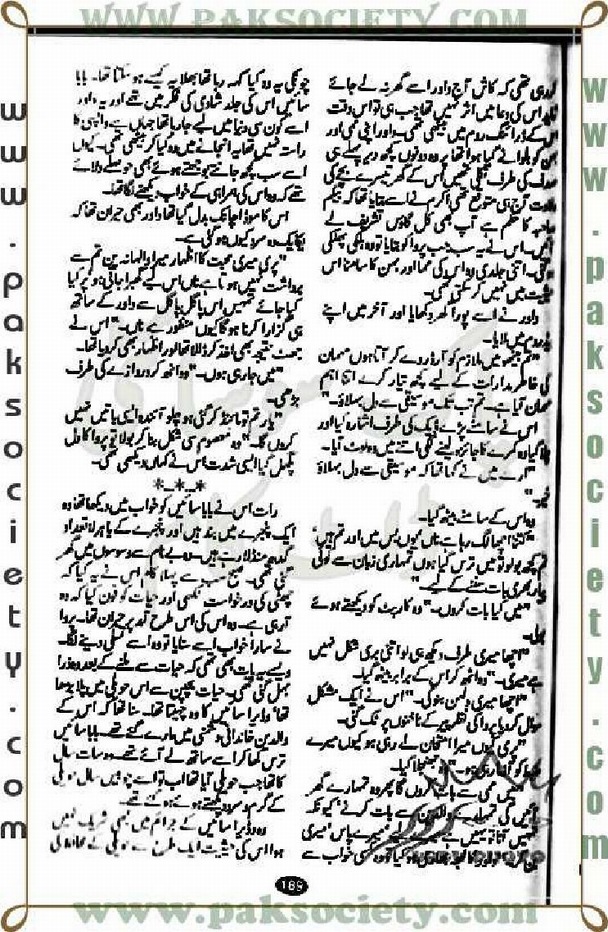 www.paksociety.com
رہی تھی کہ کاش آج داور اسے گھر نہ لے جائے
اس کی دعا میں اثر نہیں تھا جب ہی تو اس وقت
اس کے ڈرائنگ روم میں بیٹھی تھی۔ داور اپنی ممی اور
بہن کو بلوانے گیا ہوا تھا پر وہ دونوں کچھ دیر پہلے ہی
کی طرف نکلی تھیں اس کے گھر تیسرے بچے کی
آج ہی متوقع تھی اکرم نے اسے بتایا تھا کہ بیگم
کا حکم ہے آپ بھی کل گاؤں تشریف لے
اس نے یہ سب جب پروا کو بتایا تو وہ ہلکی پھلکی
اتنی جلدی وہ اس کی مما اور بہن کا سامنا اس
حیثیت میں نہیں کر سکتی تھی۔
داور نے اسے پورا گھر دکھایا اور آخر میں اپنے
بیڈ روم میں لایا۔
"تم بیٹھو میں ملازم کو آرڈر دے کر آتا ہوں مہمان
کی خاطر مدارات کے لیے کچھ تیار کرے اتنا اہم
مہمان آیا ہے۔ تم تب تک موسیقی سے دل بہلاؤ۔"
اس نے سامنے پڑے ڈیک کی طرف اشارہ کیا اور
گیا وہ کمرے کا جائزہ لینے لگی اتنے میں وہ لوٹ آیا۔
"ارے میں نے کہا تھا کہ موسیقی سے دل بہلاؤ
وہ اس کے سامنے بیٹھ گیا۔
"کتنا اچھا لگ رہا ہے میں ہوں بس میں اور تم ہیں'
تم کچھ بولو تو میں ترس گیا ہوں تمہاری زبان سے کوئی
پیار بھری بات سننے کے لیے۔"
"میں کیا بات کروں۔" وہ کارپٹ کو دیکھتے ہوئے
بولی۔
"اچھا میری طرف دیکھ ہی لو اتنی بری شکل نہیں
ہے میری۔" وہ اٹھ کر اس کے برابر بیٹھ گیا۔
"اچھا میری دلہن بنو گی۔" اس نے ایک مشکل
سوال کر دیا پروا کی نظریں پیر کے ناخنوں پر ٹک گئی۔
"پری کیوں میرا امتحان لے رہی ہو کیوں میرے
چونکی یہ وہ کیا کہہ رہا تھا بھلا یہ کیسے ہو سکتا تھا۔ بابا
سائیں اس کی جلد شادی کی فکر میں تھے اور یہ داور
اسے کون سی دنیا میں لیے جا رہا تھا جہاں سے واپسی کا
راستہ نہیں تھا یہ انجانے میں وہ کیا کر بیٹھی تھی۔ کیوں
اسے سب کچھ جانتے بوجھتے ہوئے بھی حوصلے دلائے
تھے کہ وہ اس کی ہمراہی کے خواب دیکھنے لگا تھا۔
اس کا موڈ اچانک بدل گیا تھا داور بھی حیران تھا کہ
یکایک وہ سرد کیوں ہو گئی ہے۔
"پری میری محبت کا اظہار میرا والہانہ پن تم سے
برداشت نہیں ہوتا ہے میں اس کے بغیر اپنائی ہو پر کیا
کیا جائے تمہیں اس پاگل پاگل سے داور کے ساتھ
ہی گزارا کرنا ہو گا کیوں منظور ہے ناں۔" اس نے
جھٹ نتیجہ بھی اخذ کر ڈالا تھا اور اظہار بھی کر دیا تھا۔
"میں جا رہی ہوں۔" وہ اٹھ کر دروازے کی طرف
بڑھی۔
"یار تم تو مائنڈ کر گئی ہو چلو آئندہ ایسی باتیں نہیں
کروں گا۔" وہ معصوم سی شکل بنا کر بولا تو پروا کا دل
پگھل گیا ایسی شدت اس نے کہاں دیکھی تھی۔
*_*_*
رات اس نے بابا سائیں کو خواب میں دیکھا تھا وہ
ایک پنجرے میں بند ہیں اور پنجرے کے باہر لاتعداد
گدھ منڈلا رہے ہیں۔ وہ بے نام سے وسوسوں میں گھر
گئی تھی۔ صبح سویرے پہلا کام اس نے یہ کیا کہ
چھٹی کی درخواست لکھی اور حیات کو فون کیا کہ وہ
آ رہی ہے۔ وہ اس کی اس طرح آمد پر حیران تھا۔ پروا
نے سارا خواب اسے سنایا تو وہ اسے تسلی دینے لگا۔
ویسے یہ بات بھی تھی کہ حیات سے ملنے کے بعد وہ ذرا
بہل گئی تھی۔ حیات بچپن سے اس حویلی میں پلا بڑھا
تھا' وڈیرا سائیں کا وہ چہیتا تھا۔ سنا تھا کہ اس کے
والدین خاندانی دشمنی میں مارے گئے تھے۔ بابا سائیں
ترس کھا کر اسے ساتھ لے آئے تھے۔ وہ سات سال
کا تھا جب حویلی آیا تھا اب تو اسے
کے گرم و سرد دیکھتے ہوئے ہو گئے تھے
وہ وڈیرا سائیں کے جرائم میں بھی شریک نہیں
ہوا اس کی حیثیت ایک طرح سے حویلی کے محافظ کی
189
www.paksociety.com
www.paksociety.com
www.paksociety.com